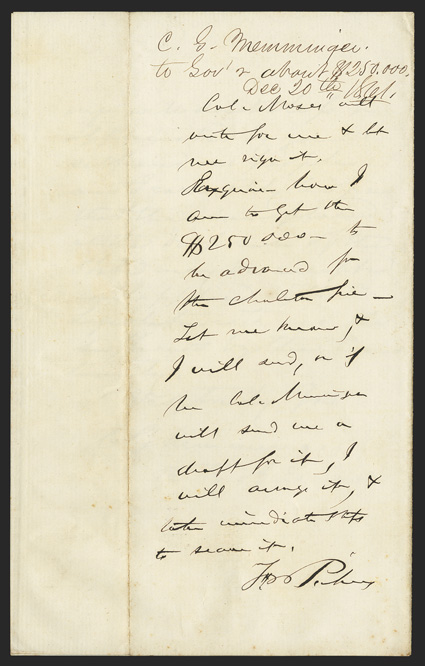 C. G. Memminger.
to Gov'r about $250.000.
Dec 20th 1861.
Col. Moses will
write for me & let
me sign it.
Enquire how I
am to get the
$250 000 — to
be advanced for
the Charleston fire —
Let me know, &
I will send, or if
he Col. Memminger
will send me a
draft for it, I
will arrange it, &
take immediate steps
to secure it.
F W Pickens